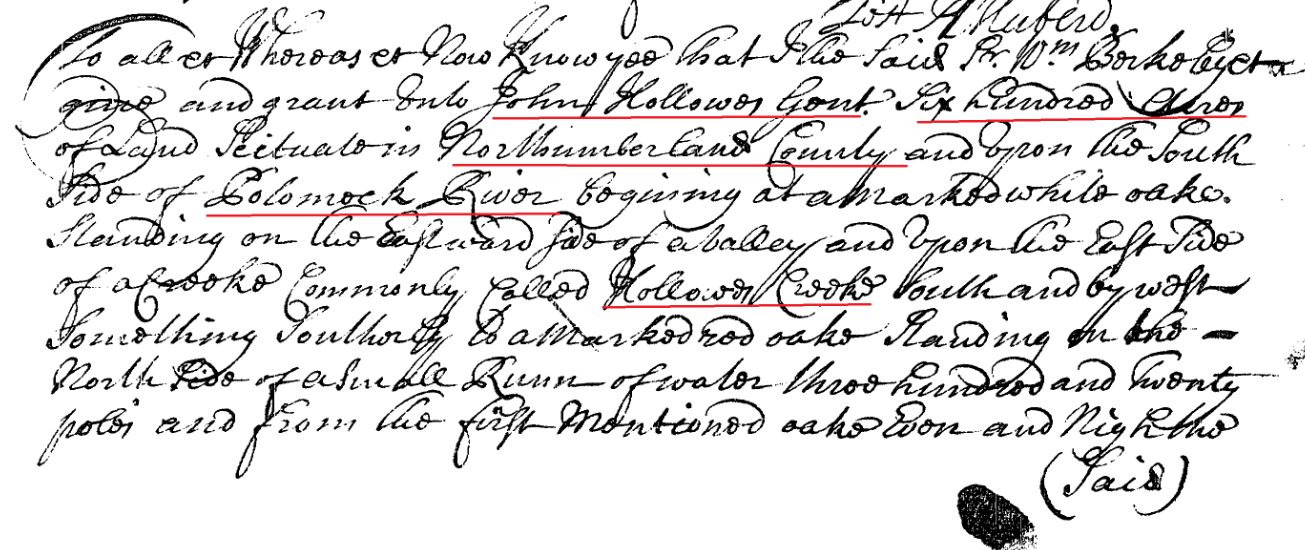 To all &c Whereas &c Now Know yee that I the Said Sr. Wm Berkeley &c
give and grant Unto John Hollowes Gent. Six hundred Acres
of Land Scituate in Northumberland County and Upon the South
Side of Potomeck River begining at a Marked white oake.
Standing on the Eastward Side of a Valley and Upon the East Side
of a Creeke Commonly Called Hollowes Creeke South and by west
Something Southerly to a Marked red oake Standing on the –
North Side of a Small Runn of water three hundred and twenty
poles and from the first Mentioned oake Even and Nigh the
(Said)